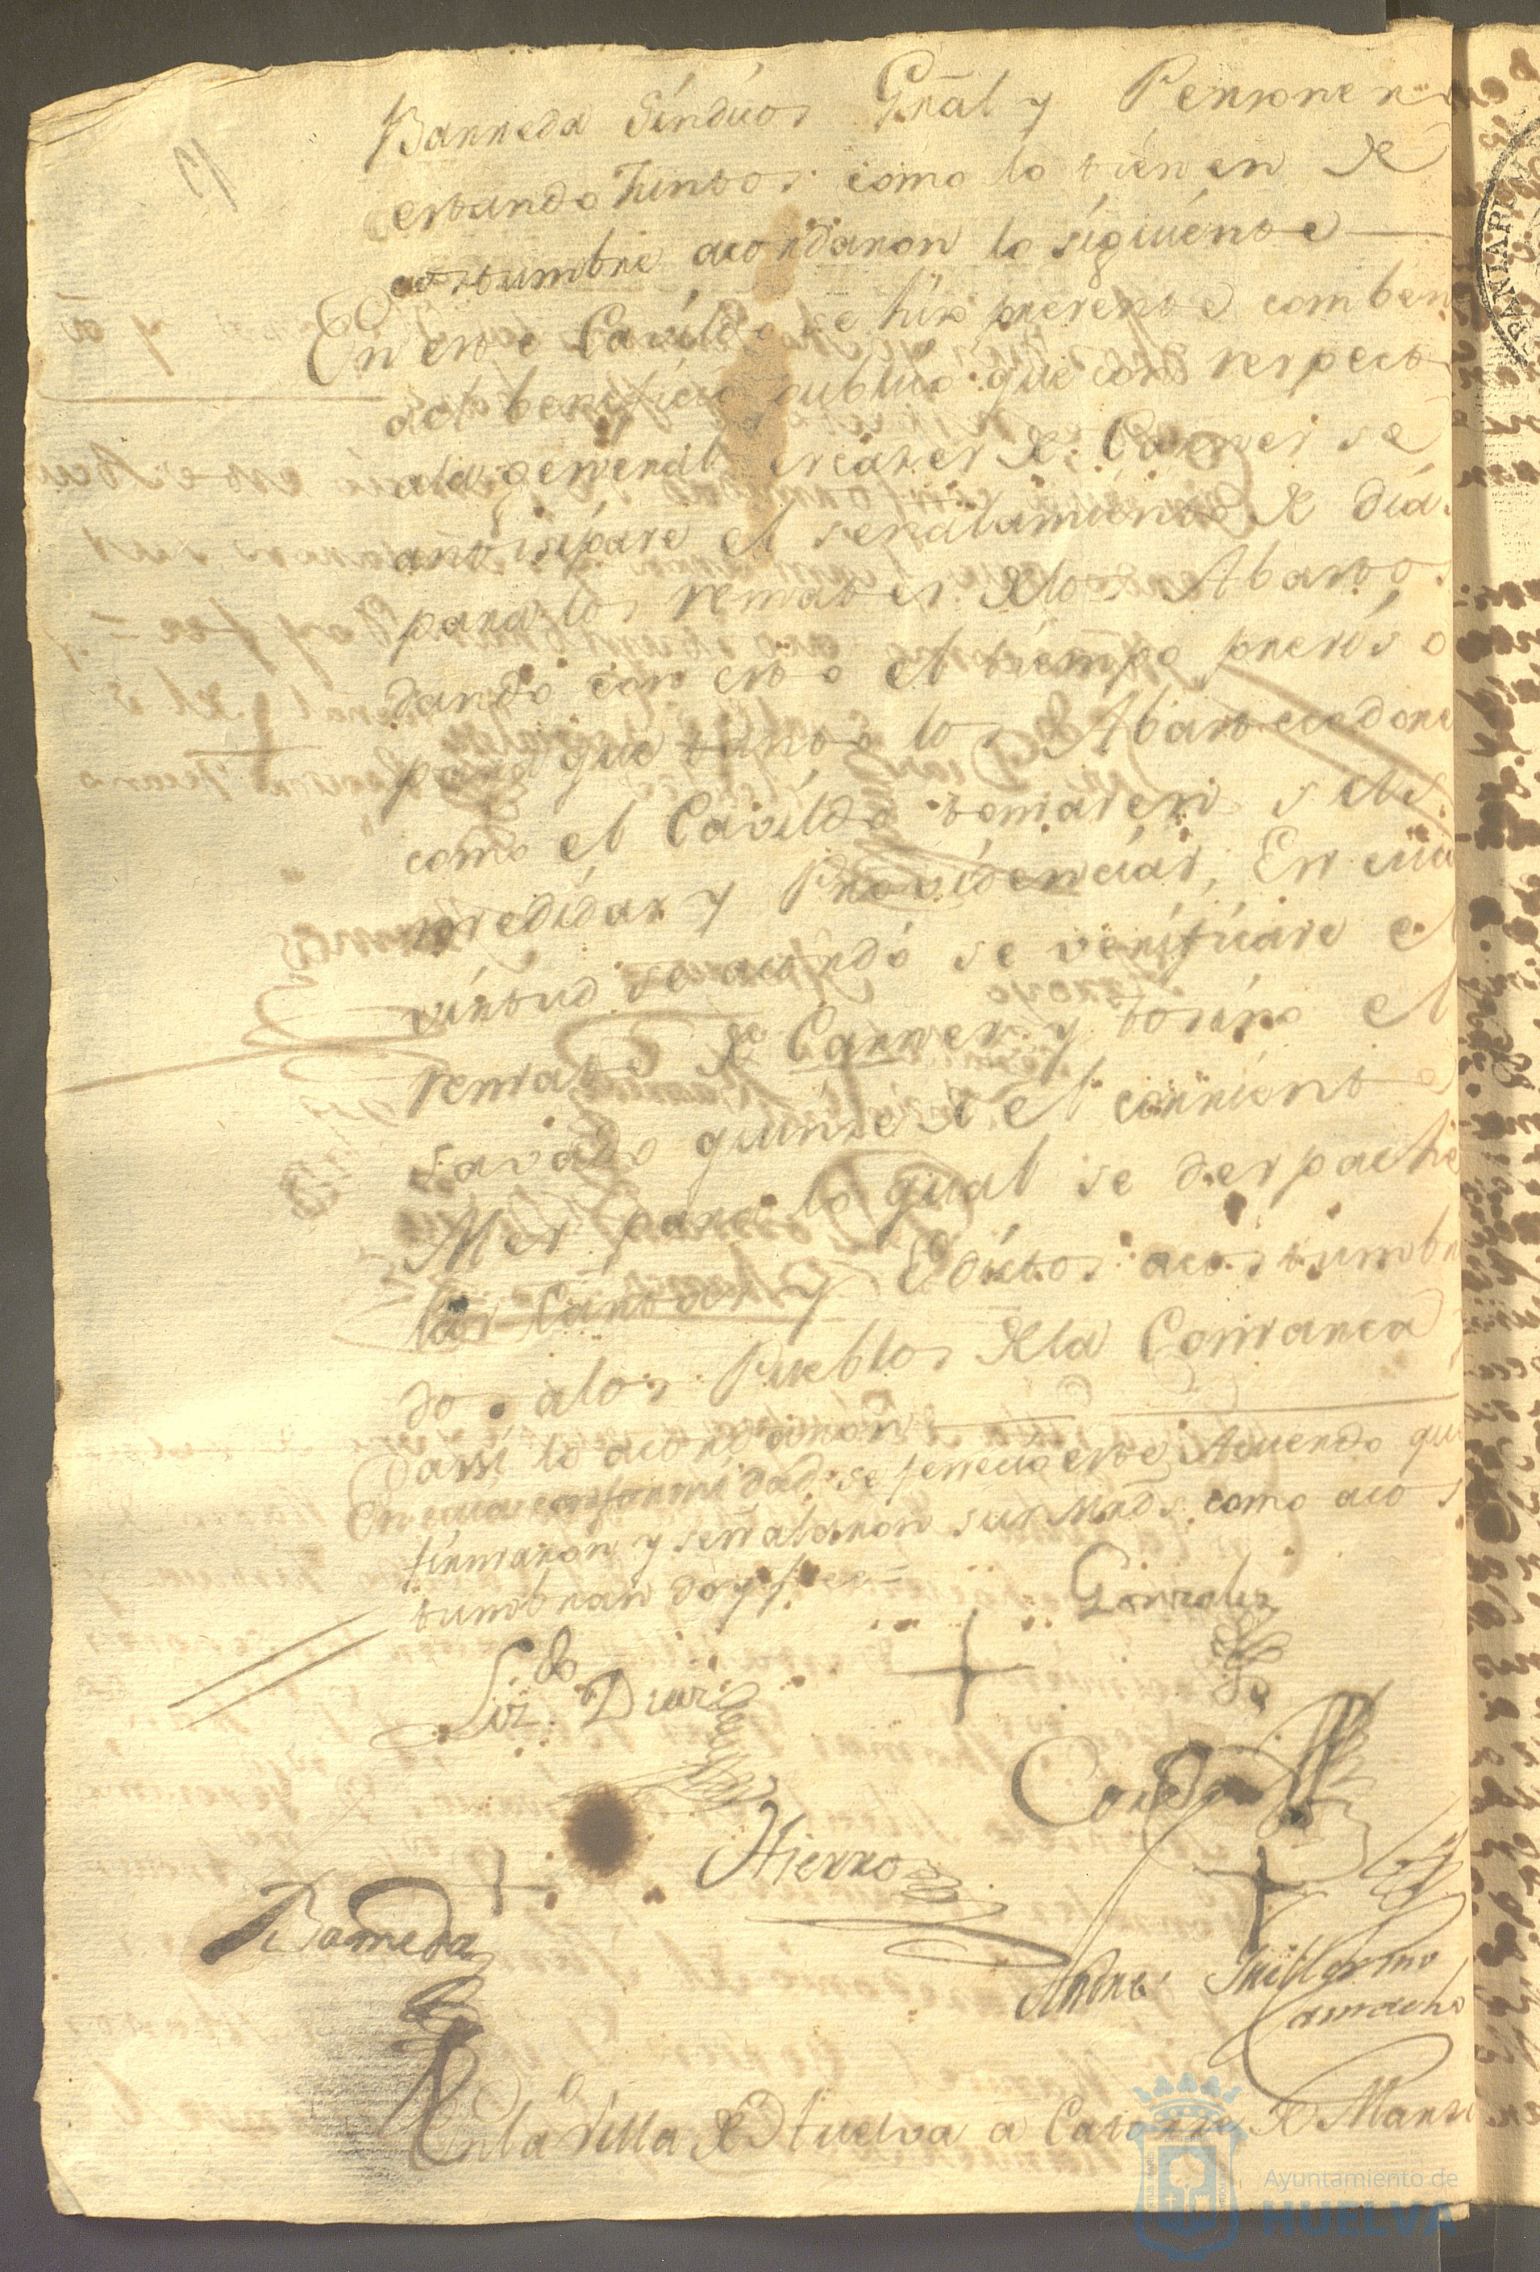 Barreda Sindicos Gñal y Personero
estando Juntos como lo tienen de
costumbre acordaron lo siguiente
En este Cavildo se hizo presente comben
al beneficio publico que con respecto
ala general escases de Carnes se
antisipare el señalamiento de dia
para los remates delos Abastos
dando con esto el tiempo presiso
para que tanto los Abastecedores
como el Cavildo tomasen sus
medidas y Providencias, En cuia
virtud se acordó se verificare el
remate de Carnes y tosino el
Savado quinse de el corriente
Mes para lo qual se despache
las Cartas y Edictos acostumbra
do alos Pueblos dela Comarca y
assi lo acordaron
En cuia conformidad se fenecio este Acuerdo que
firmaron y señalaron sus Mrds. como acos
tumbran doy fee=
Gonzales
Liz.do Diaz
Hierro
Barreda
Andres Guillermo
Camacho
En la Villa de Huelva a Catorze de Marzo
Ayuntamiento de
HUELVA